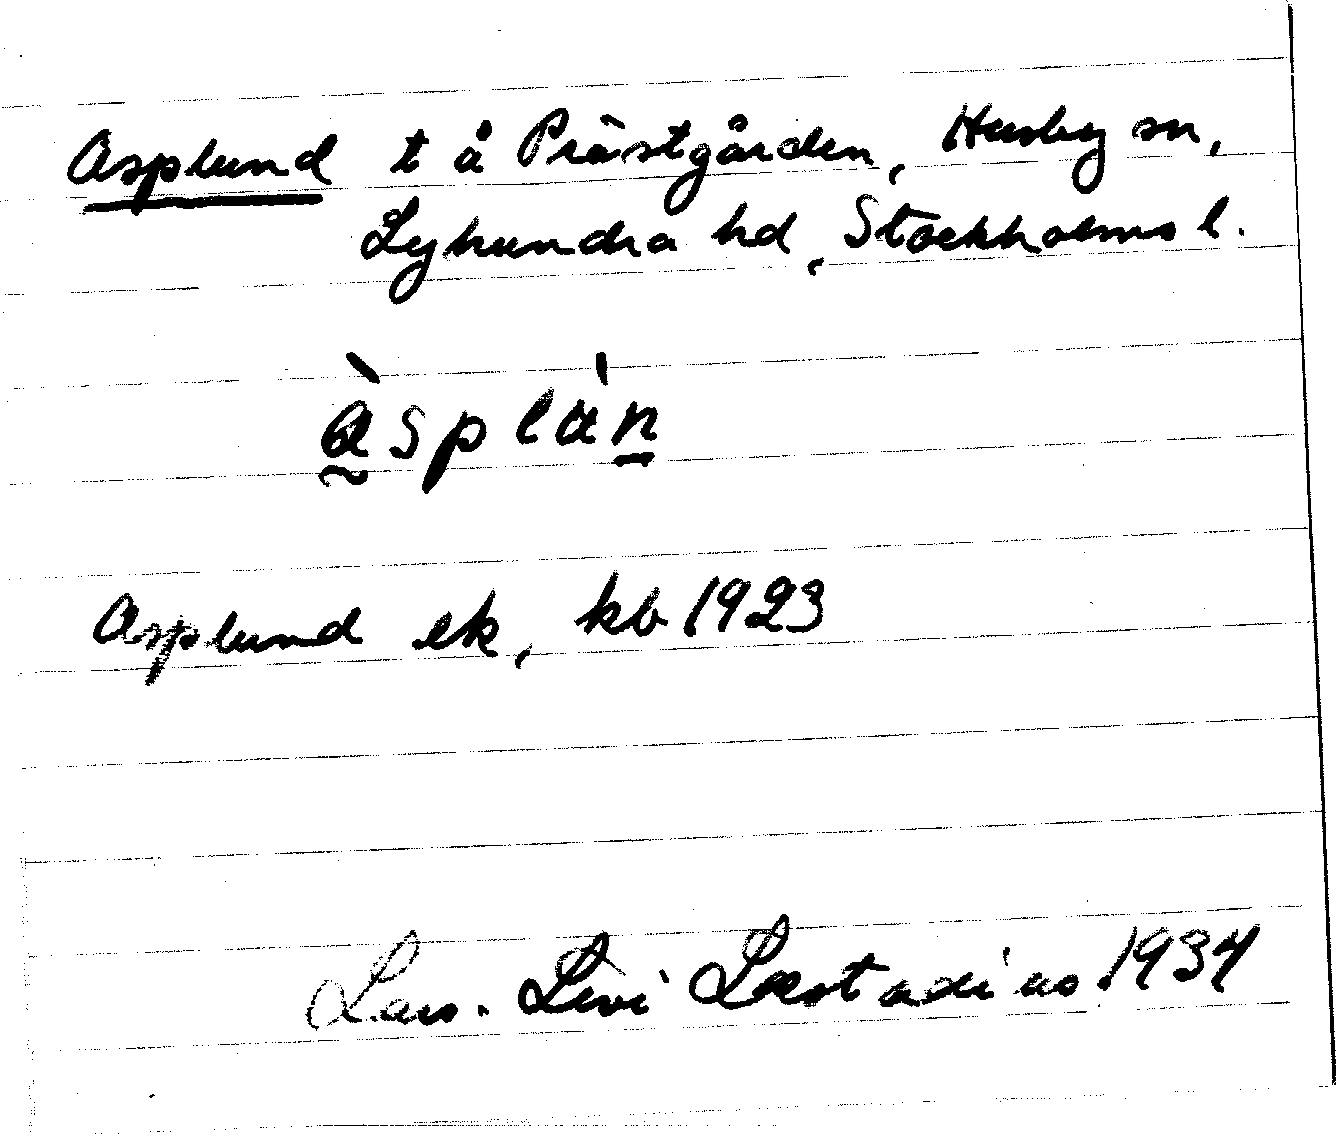 Asplund t å Prästgården, Husby sn,
Lyhundra hd, Stockholms l.
àsplàn
Asplund ek, kb 1923
Lars. Levi Læstadius 1934